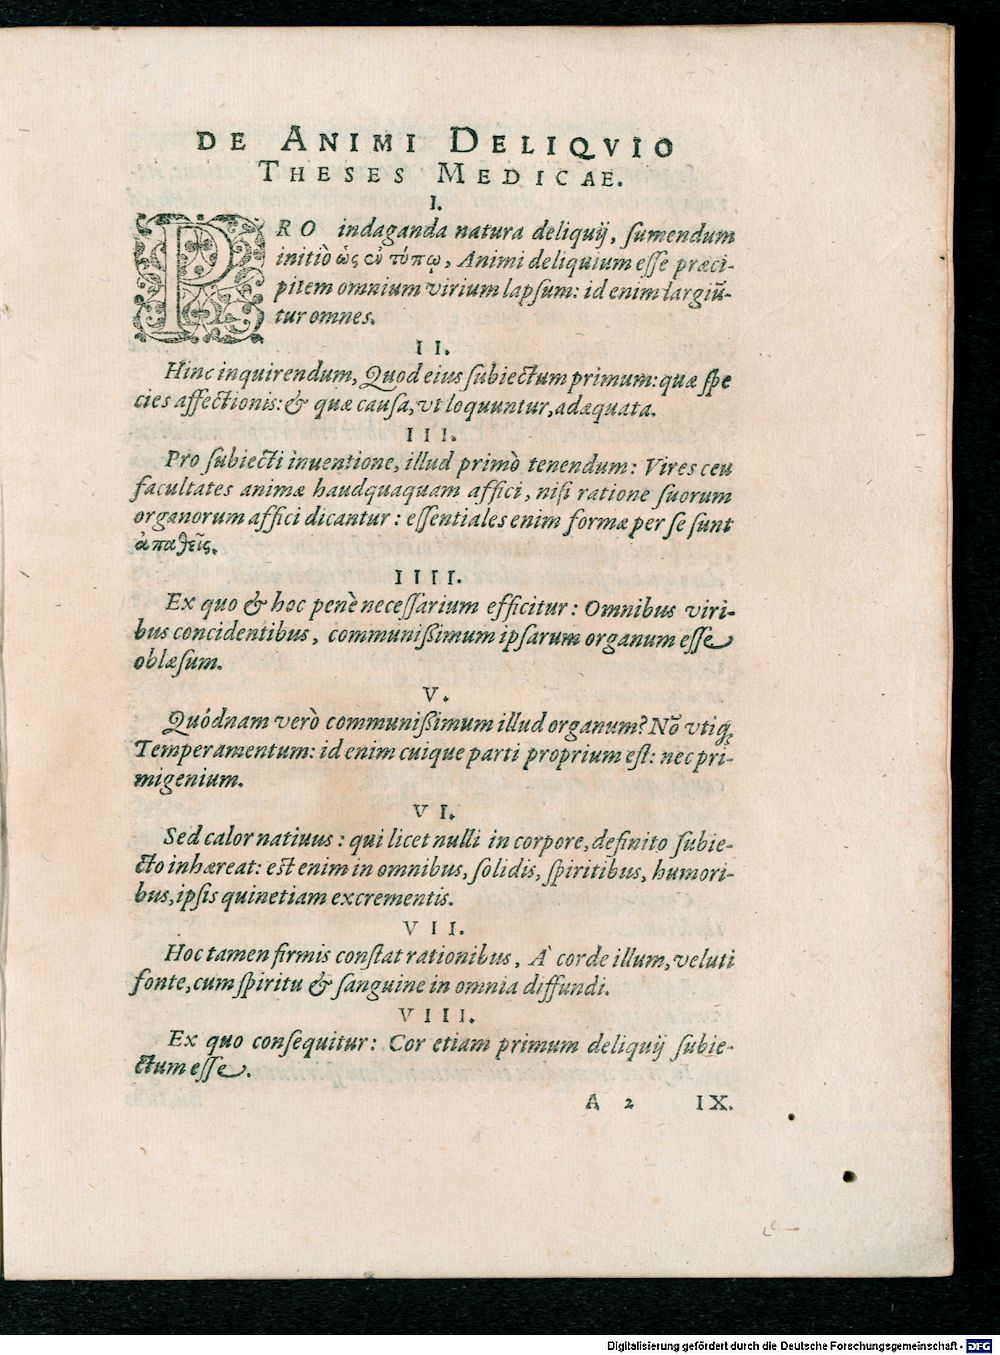 DE ANIMI DELIQVIO
THESES MEDICAE.
I.
PRO indaganda natura deliquij, sumendum
initiò ὡς ἐν τύπῳ, Animi deliquium esse præci-
pitem omnium virium lapsum: id enim largiũ-
tur omnes.
II.
Hinc inquirendum, Quod eius subiectum primum: quæ spe
cies affectionis: & quæ causa, vt loquuntur, adæquata.
III.
Pro subiecti inuentione, illud primò tenendum: Vires ceu
facultates animæ haudquaquam affici, nisi ratione suorum
organorum affici dicantur: essentiales enim formæ per se sunt
ἀπαθεῖς.
IIII.
Ex quo & hoc penè necessarium efficitur: Omnibus viri-
bus concidentibus, communißimum ipsarum organum esse
oblæsum.
V.
Quódnam verò communißimum illud organum? Nõ vtiq;
Temperamentum: id enim cuique parti proprium est: nec pri-
migenium.
VI.
Sed calor natiuus: qui licet nulli in corpore, definito subie-
cto inhæreat: est enim in omnibus, solidis, spiritibus, humori-
bus, ipsis quinetiam excrementis.
VII.
Hoc tamen firmis constat rationibus, À corde illum, veluti
fonte, cum spiritu & sanguine in omnia diffundi.
VIII.
Ex quo consequitur: Cor etiam primum deliquij subie-
ctum esse.
A 2 IX.
Digitalisierung gefördert durch die Deutsche Forschungsgemeinschaft - DFG